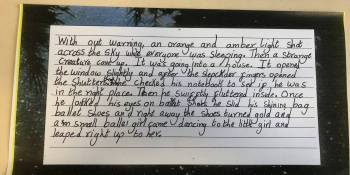 With out warning, an orange and amber light shot
across the sky while everyone was sleeping. Then a strange
creature came up. It was going into a house. It opened
the window slightly and after the slender fingers opened
the shutters. checked his notebook to see if he was
in the right place. Then he swiftly fluttered inside. Once
he locked his eyes on ballet shoes he slid his shining bag
ballet shoes and right away the shoes turned gold and
a small ballet girl came dancing to the little girl and
leaped right up to her.